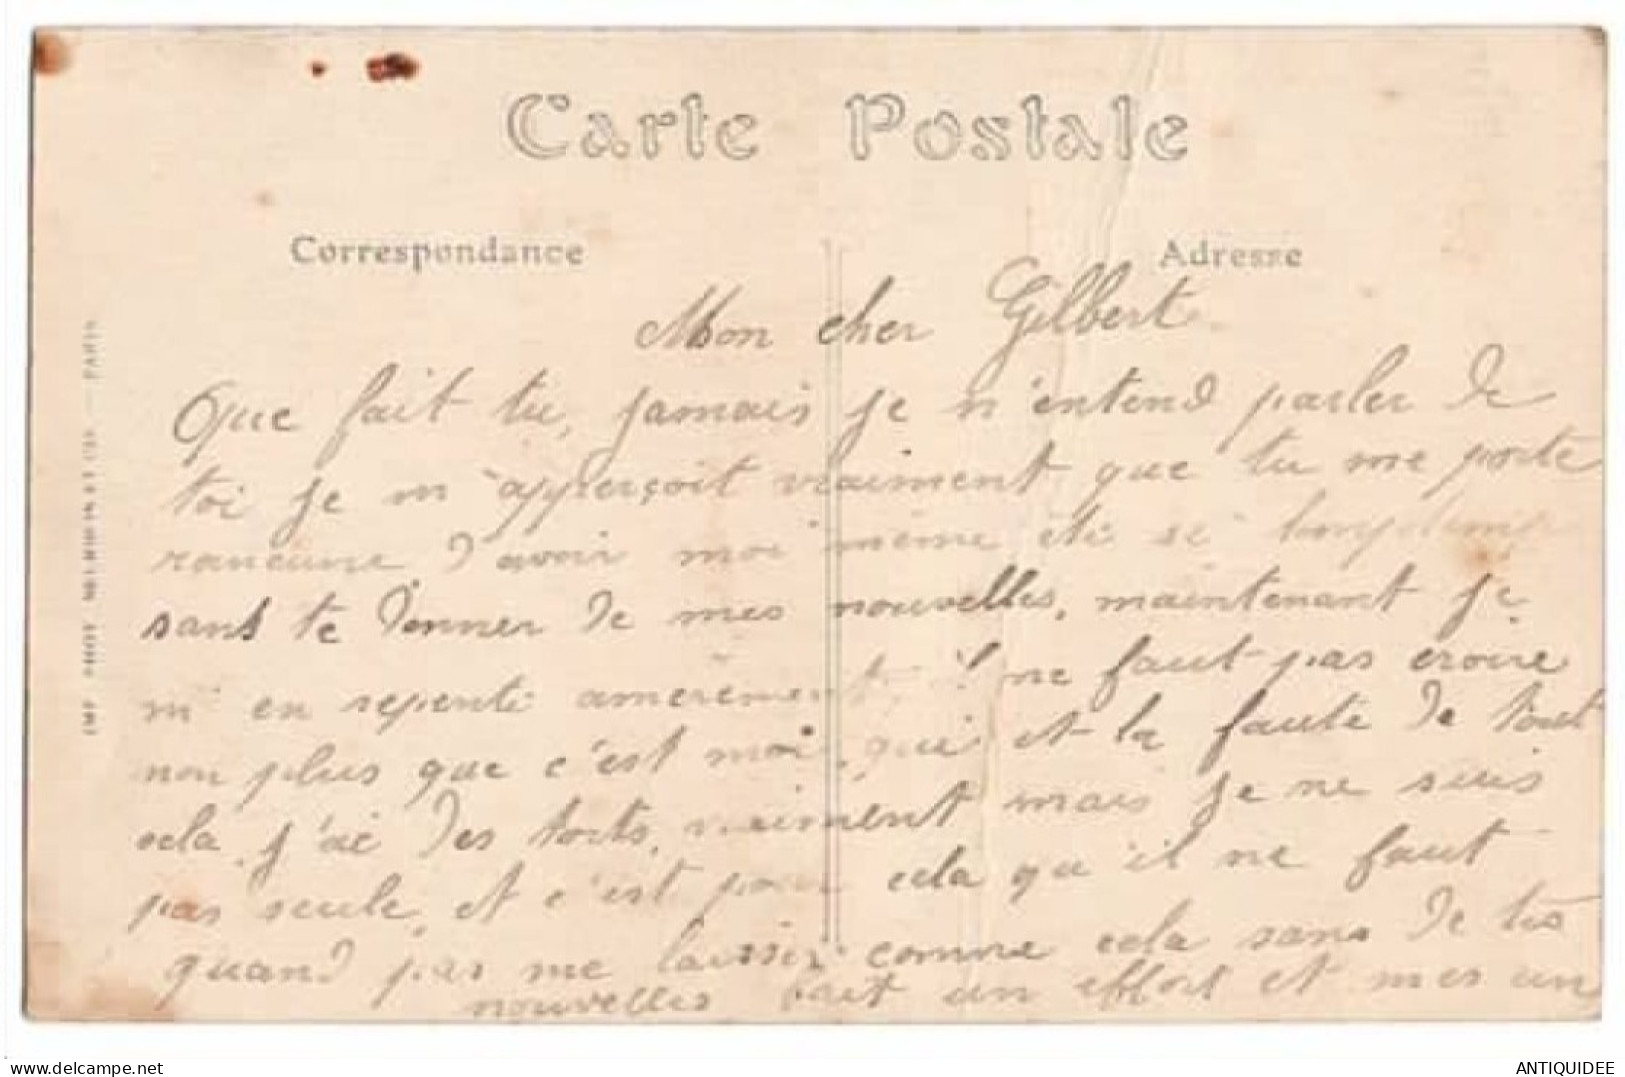 Carte Postale
Correspondance
Adresse
Mon cher Gilbert
Que fait tu, jamais je n'entend parler de
toi je m'apperçoit vraiment que tu me porte
rancune d'avoir moi même été si longtemps
sans te donner de mes nouvelles, maintenant je
m'en repenti amerement, il ne faut pas croire
non plus que c'est moi, qui et la faute de tout
cela, j'ai des torts, vraiment mais je ne suis
pas seule, et c'est pour cela qu'il ne faut
quand pas me laisser comme cela sans de tes
nouvelles fait un effort et mes un
IMP. PHOT. NEURDEIN ET CIE — PARIS
delcampe.net
ANTIQUIDEE